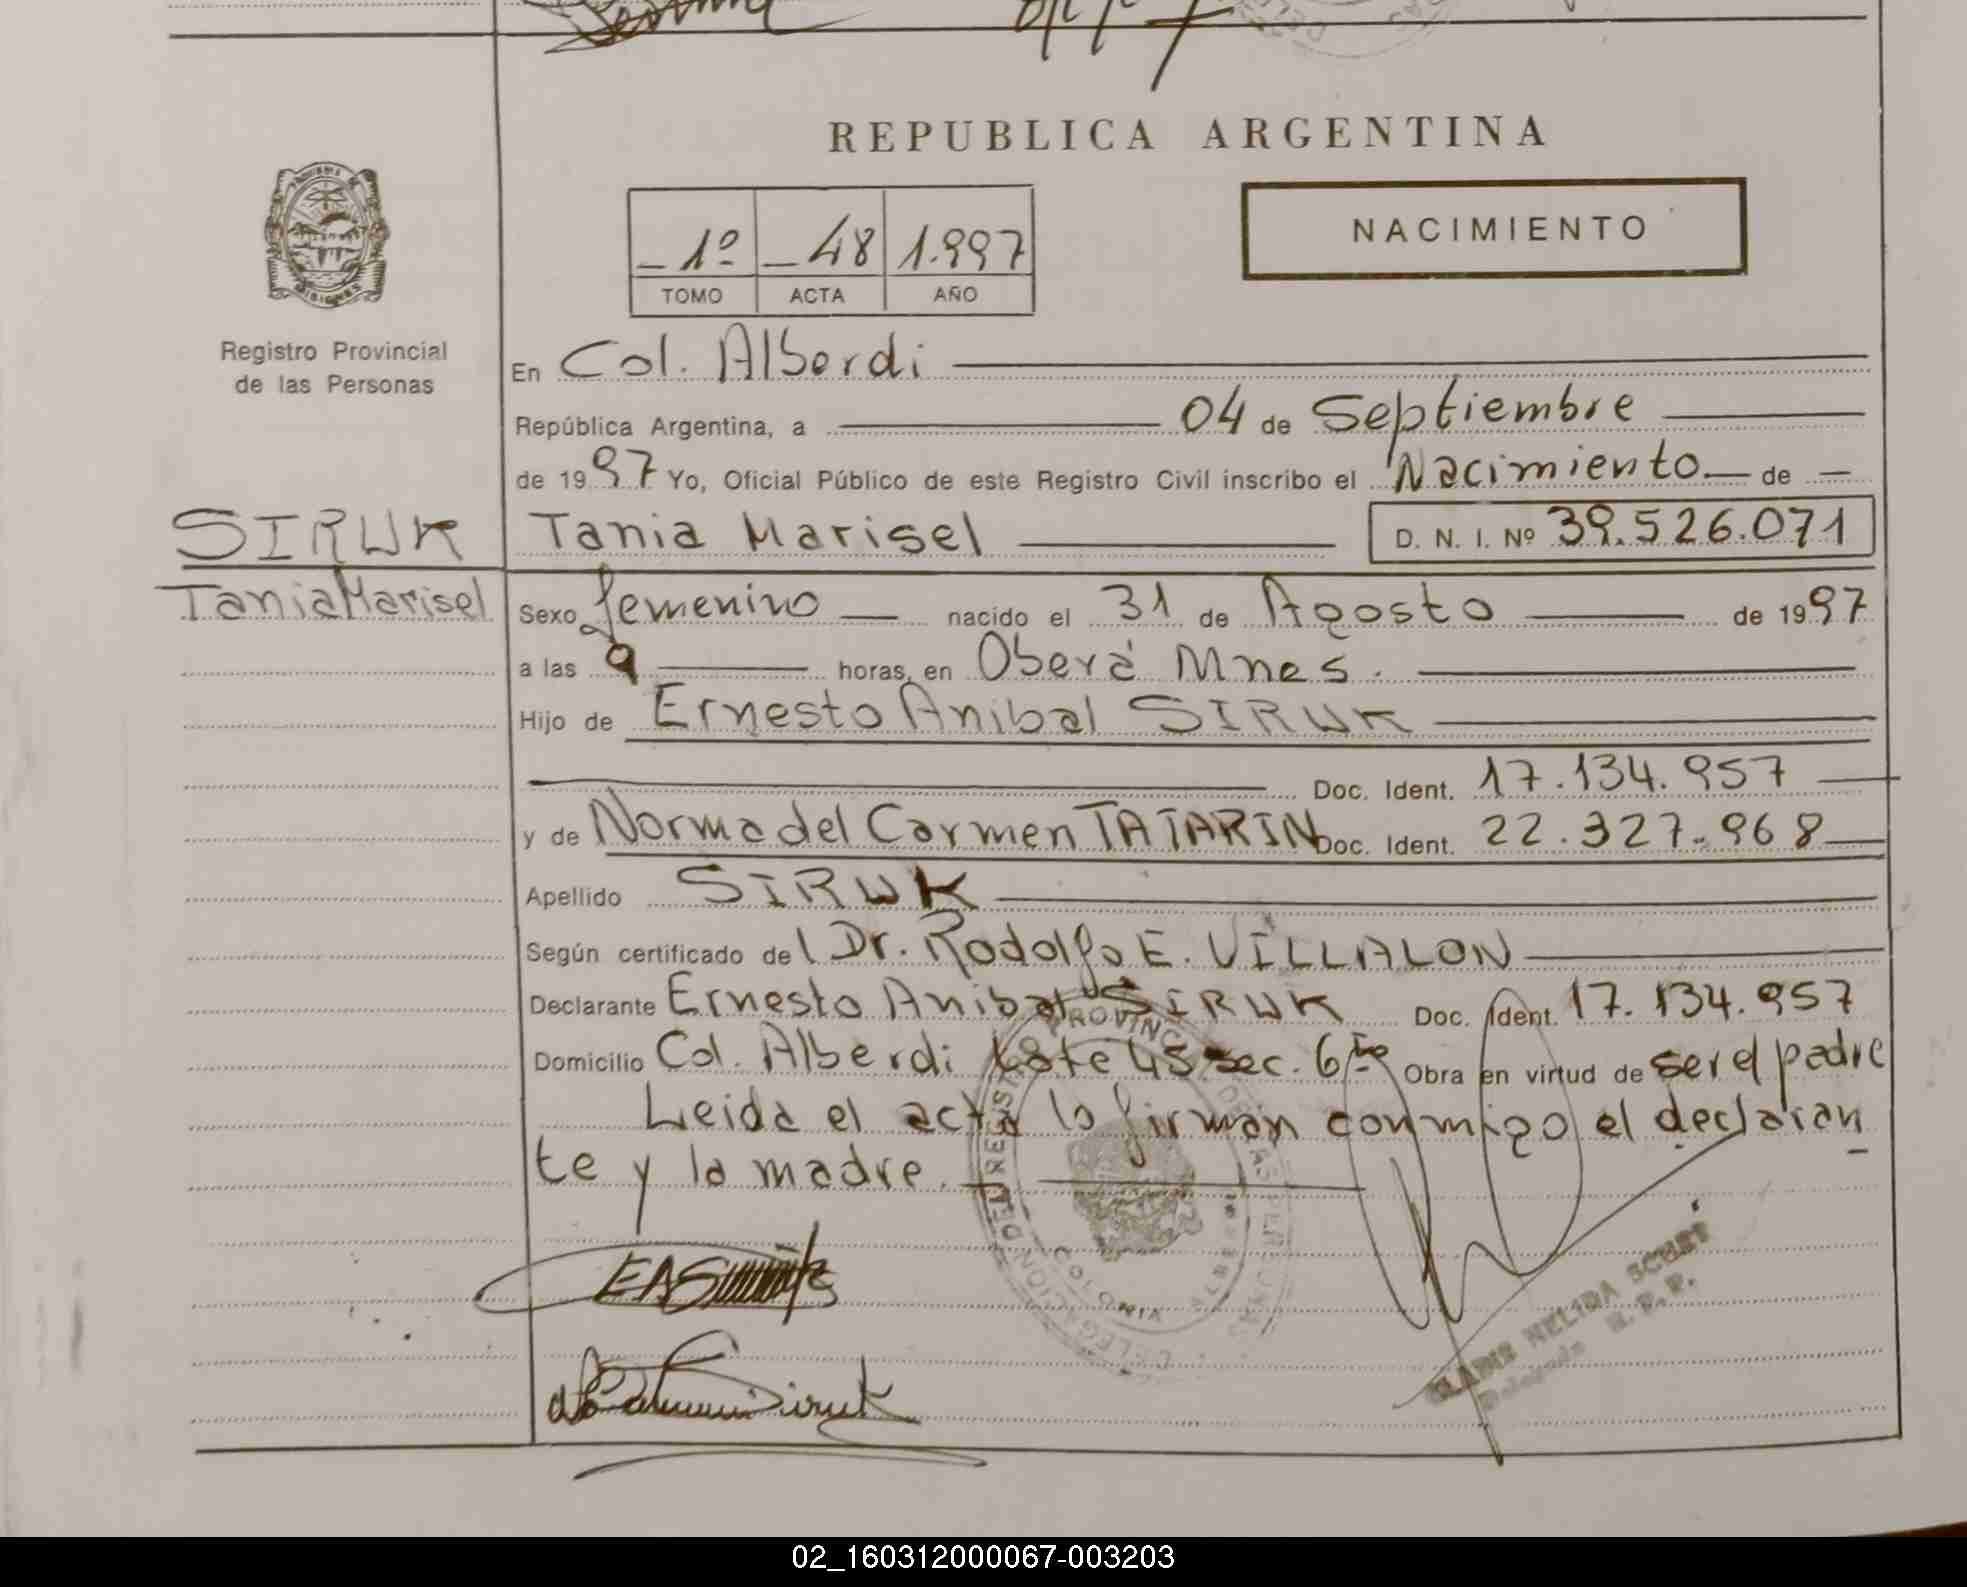 REPUBLICA ARGENTINA
NACIMIENTO
1º 48 1.997
TOMO ACTA AÑO
Registro Provincial
de las Personas
En Col. Alberdi
República Argentina, a 04 de Septiembre
de 1997 Yo, Oficial Público de este Registro Civil inscribo el Nacimiento de
SIRUK
Tania Marisel
Tania Marisel D. N. I. Nº 39.526.071
Sexo femenino nacido el 31 de Agosto de 1997
a las 9 horas, en Oberá Mnes.
Hijo de Ernesto Anibal SIRUK
Doc. Ident. 17.134.957
y de Norma del Carmen TATARIN Doc. Ident. 22.327.968
Apellido SIRUK
Según certificado del Dr. Rodolfo E. VILLALON
Declarante Ernesto Anibal SIRUK Doc. Ident. 17.134.957
Domicilio Col. Alberdi Lote 45 sec. 6ta Obra en virtud de ser el padre
Leida el acta lo firman conmigo el declaran
te y la madre.
COLONIA ALBERDI
GLADIS NELIDA
Delegada R. P. P.
02_160312000067-003203